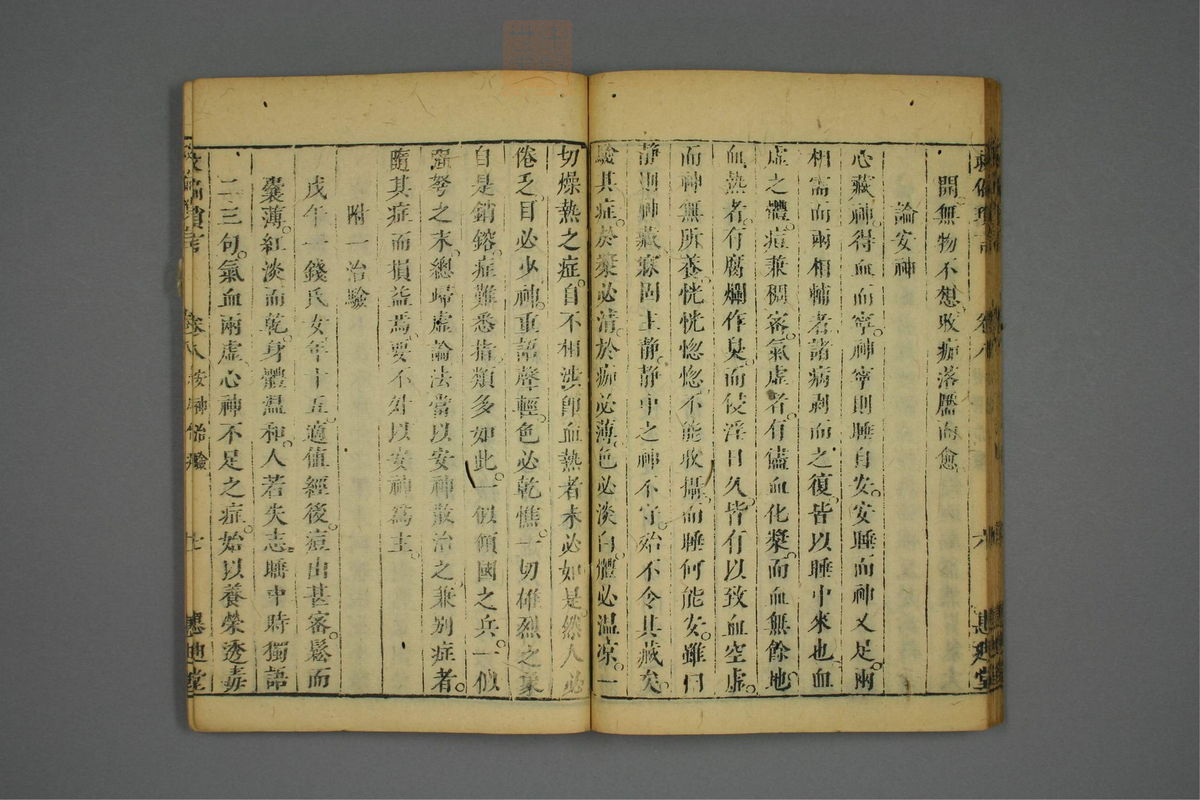 卷八
六
惠迪堂
間無物不想收痂落靨而愈
論安神
心藏神得血而寧神寧則睡自安安睡而神又足兩
相需而兩相輔者諸病剥而之復皆以睡中來也血
虛之體痘兼稠密氣虛者有儘血化漿而血無餘地
血熱者有腐爛作臭而侵淫日久皆有以致血空虛
而神無所養恍恍惚惚不能收攝而睡何能安雖曰
靜則神藏寐固主靜靜中之神不守殆不令其藏矣
驗其症於漿必清於痂必薄色必淡白體必溫涼一
切燥熱之症自不相涉卽血熱者未必如是然人必
倦乏目必少神重語聲輕色必乾憔一切雄烈之氣
自是銷鎔症難悉指類多如此一似傾國之兵一似
弩之末總歸虛論法當以安神散治之兼別症者
隨其症而損益焉要不外以安神爲主
附一治驗
戊午一錢氏女年十五適值經後痘出甚密鬆而
囊薄紅淡而乾身體溫和人若失志睡中時獨語
二三句氣血兩虛心神不足之症始以養榮透毒
卷八
安神治驗
七
惠迪堂